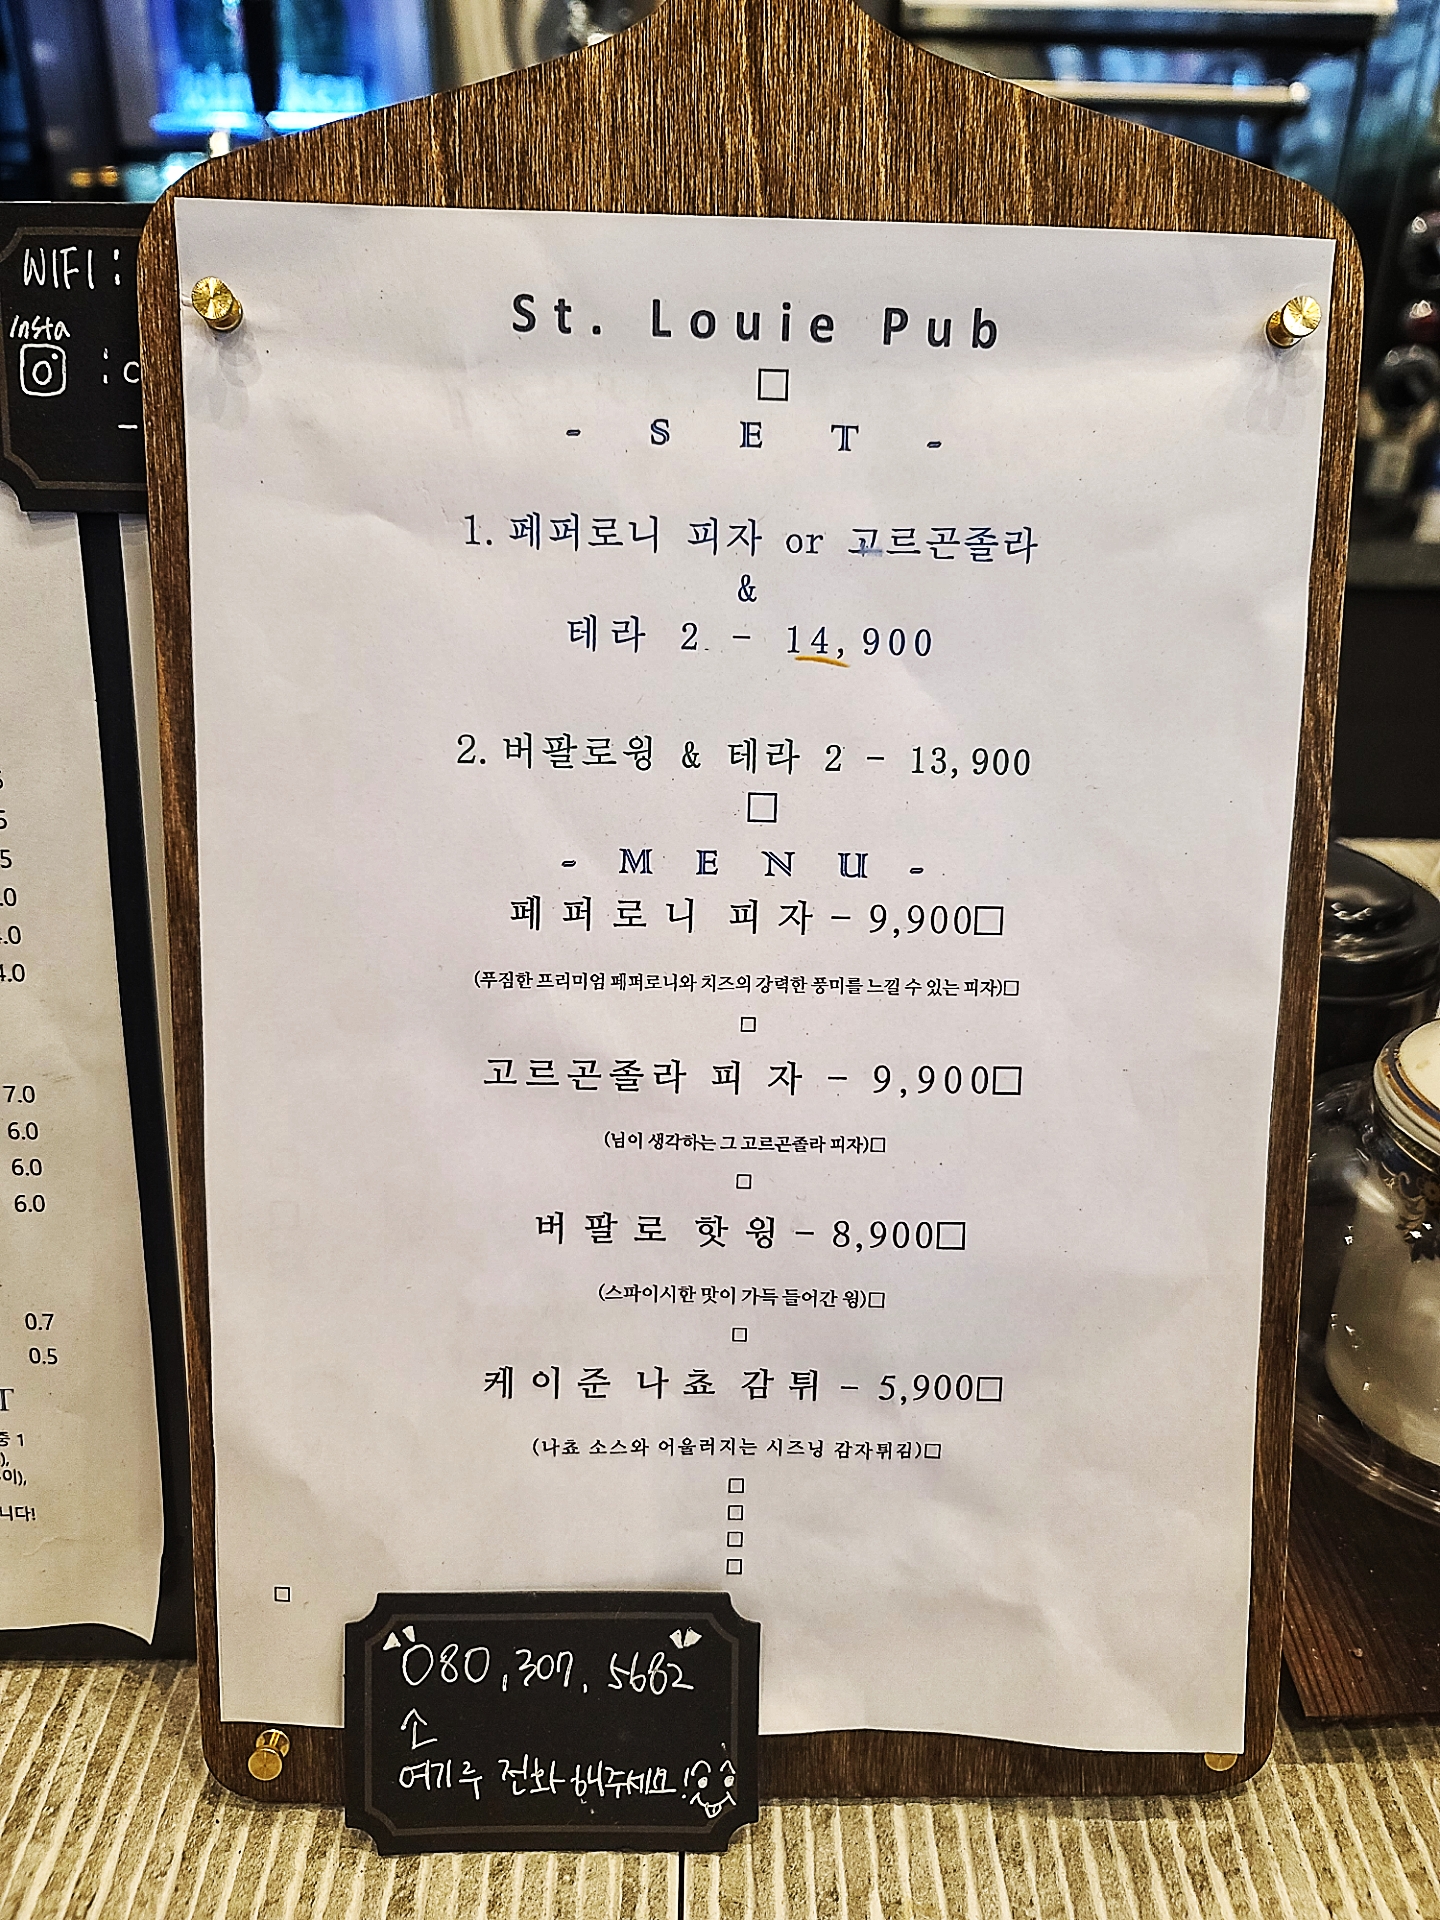 WIFI :
Insta
: c
-
St. Louie Pub
□
- SET -
1. 페퍼로니 피자 or 고르곤졸라
&
테라 2 - 14,900
2. 버팔로윙 & 테라 2 - 13,900
□
- MENU -
페퍼로니 피자 - 9,900□
(푸짐한 프리미엄 페퍼로니와 치즈의 강력한 풍미를 느낄 수 있는 피자)□
□
고르곤졸라 피자 - 9,900□
(님이 생각하는 그 고르곤졸라 피자)□
□
버팔로 핫윙 - 8,900□
(스파이시한 맛이 가득 들어간 윙)□
□
케이준 나쵸 감튀 - 5,900□
(나쵸 소스와 어울러지는 시즈닝 감자튀김)□
□
□
□
□
□
080.307.5682
여기루 전화해주세요!
5
.0
4.0
7.0
6.0
6.0
6.0
0.7
0.5
T
중 1
니다!